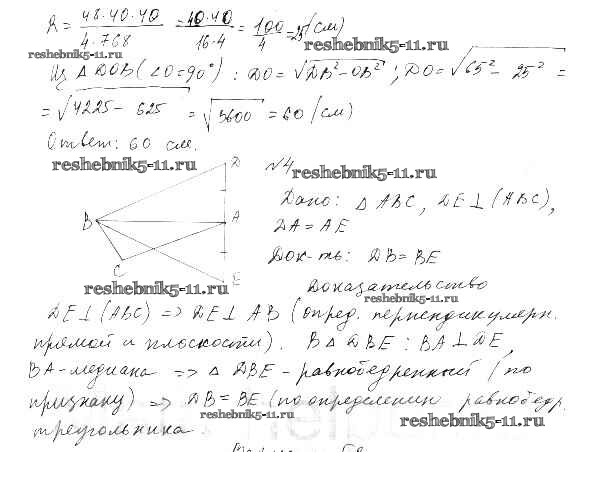 R = 48·40·40 / 4·768 = 40·40 / 16·4 = 100 / 4 = 25 (см)
reshebnik5-11.ru
reshebnik5-11.ru
Из △DOB (∠O=90°) : DO = √DB² − OB² ; DO = √65² − 25² =
= √4225 − 625 = √3600 = 60 (см)
Ответ: 60 см.
reshebnik5-11.ru
№4
reshebnik5-11.ru
D
B
A
C
E
Дано: △ ABC, DE ⊥ (ABC),
DA = AE
Док-ть: DB = BE
reshebnik5-11.ru
Доказательство
reshebnik5-11.ru
DE ⊥ (ABC) => DE ⊥ AB (опред. перпендикулярн.
прямой и плоскости). В △ DBE : BA ⊥ DE,
BA - медиана => △ DBE - равнобедренный (по
признаку) => DB = BE (по определению равнобедр.
reshebnik5-11.ru
reshebnik5-11.ru
треугольника.